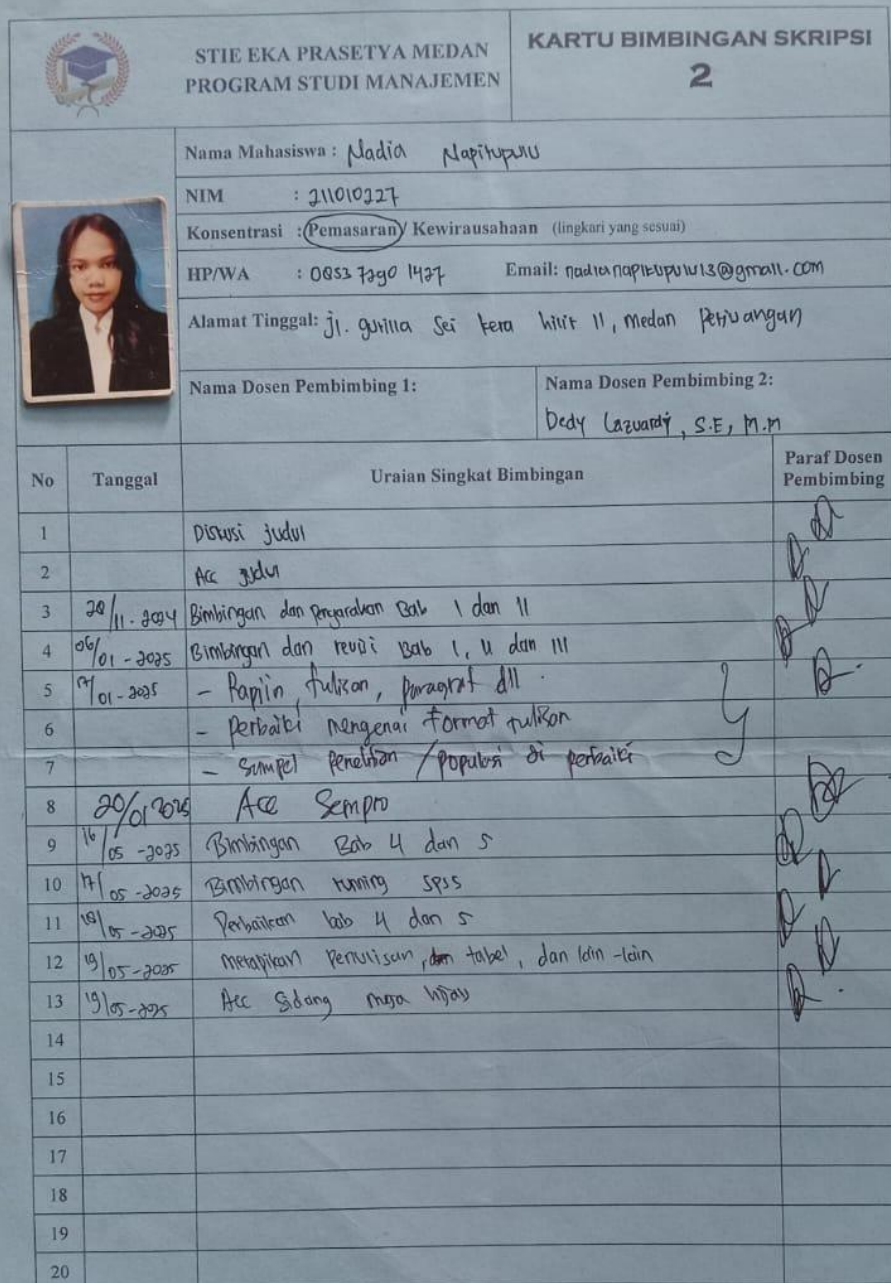 STIE EKA PRASETYA MEDAN
PROGRAM STUDI MANAJEMEN
KARTU BIMBINGAN SKRIPSI
2
Nama Mahasiswa : Nadia Napitupulu
NIM : 211010227
Konsentrasi : Pemasaran / Kewirausahaan (lingkari yang sesuai)
HP/WA : 0853 7290 1427 Email: nadianapitupulu13@gmail.com
Alamat Tinggal: jl. gurilla Sei kera hilir II, medan Perjuangan
Nama Dosen Pembimbing 1:
Nama Dosen Pembimbing 2:
Dedy Lazuardi, S.E, M.M
No Tanggal Uraian Singkat Bimbingan Paraf Dosen Pembimbing
1 Diskusi judul
2 Acc judul
3 /11-2024 Bimbingan dan Bab I dan II
4 06/01-2025 Bimbingan dan revisi Bab I, II dan III
5 17/01-2025 - Rapiin tulisan, paragraf dll.
6 - Perbaiki mengenai format tulisan
7 - Sampel Penelitian / Populasi di perbaiki
8 20/01 2025 Acc Sempro
9 16/05-2025 Bimbingan Bab 4 dan 5
10 17/05-2025 Bimbingan running SPSS
11 18/05-2025 Perbaikan bab 4 dan 5
12 19/05-2025 Merapikan Penulisan, tabel, dan lain-lain
13 19/05-2025 Acc Sidang meja hijau
14
15
16
17
18
19
20